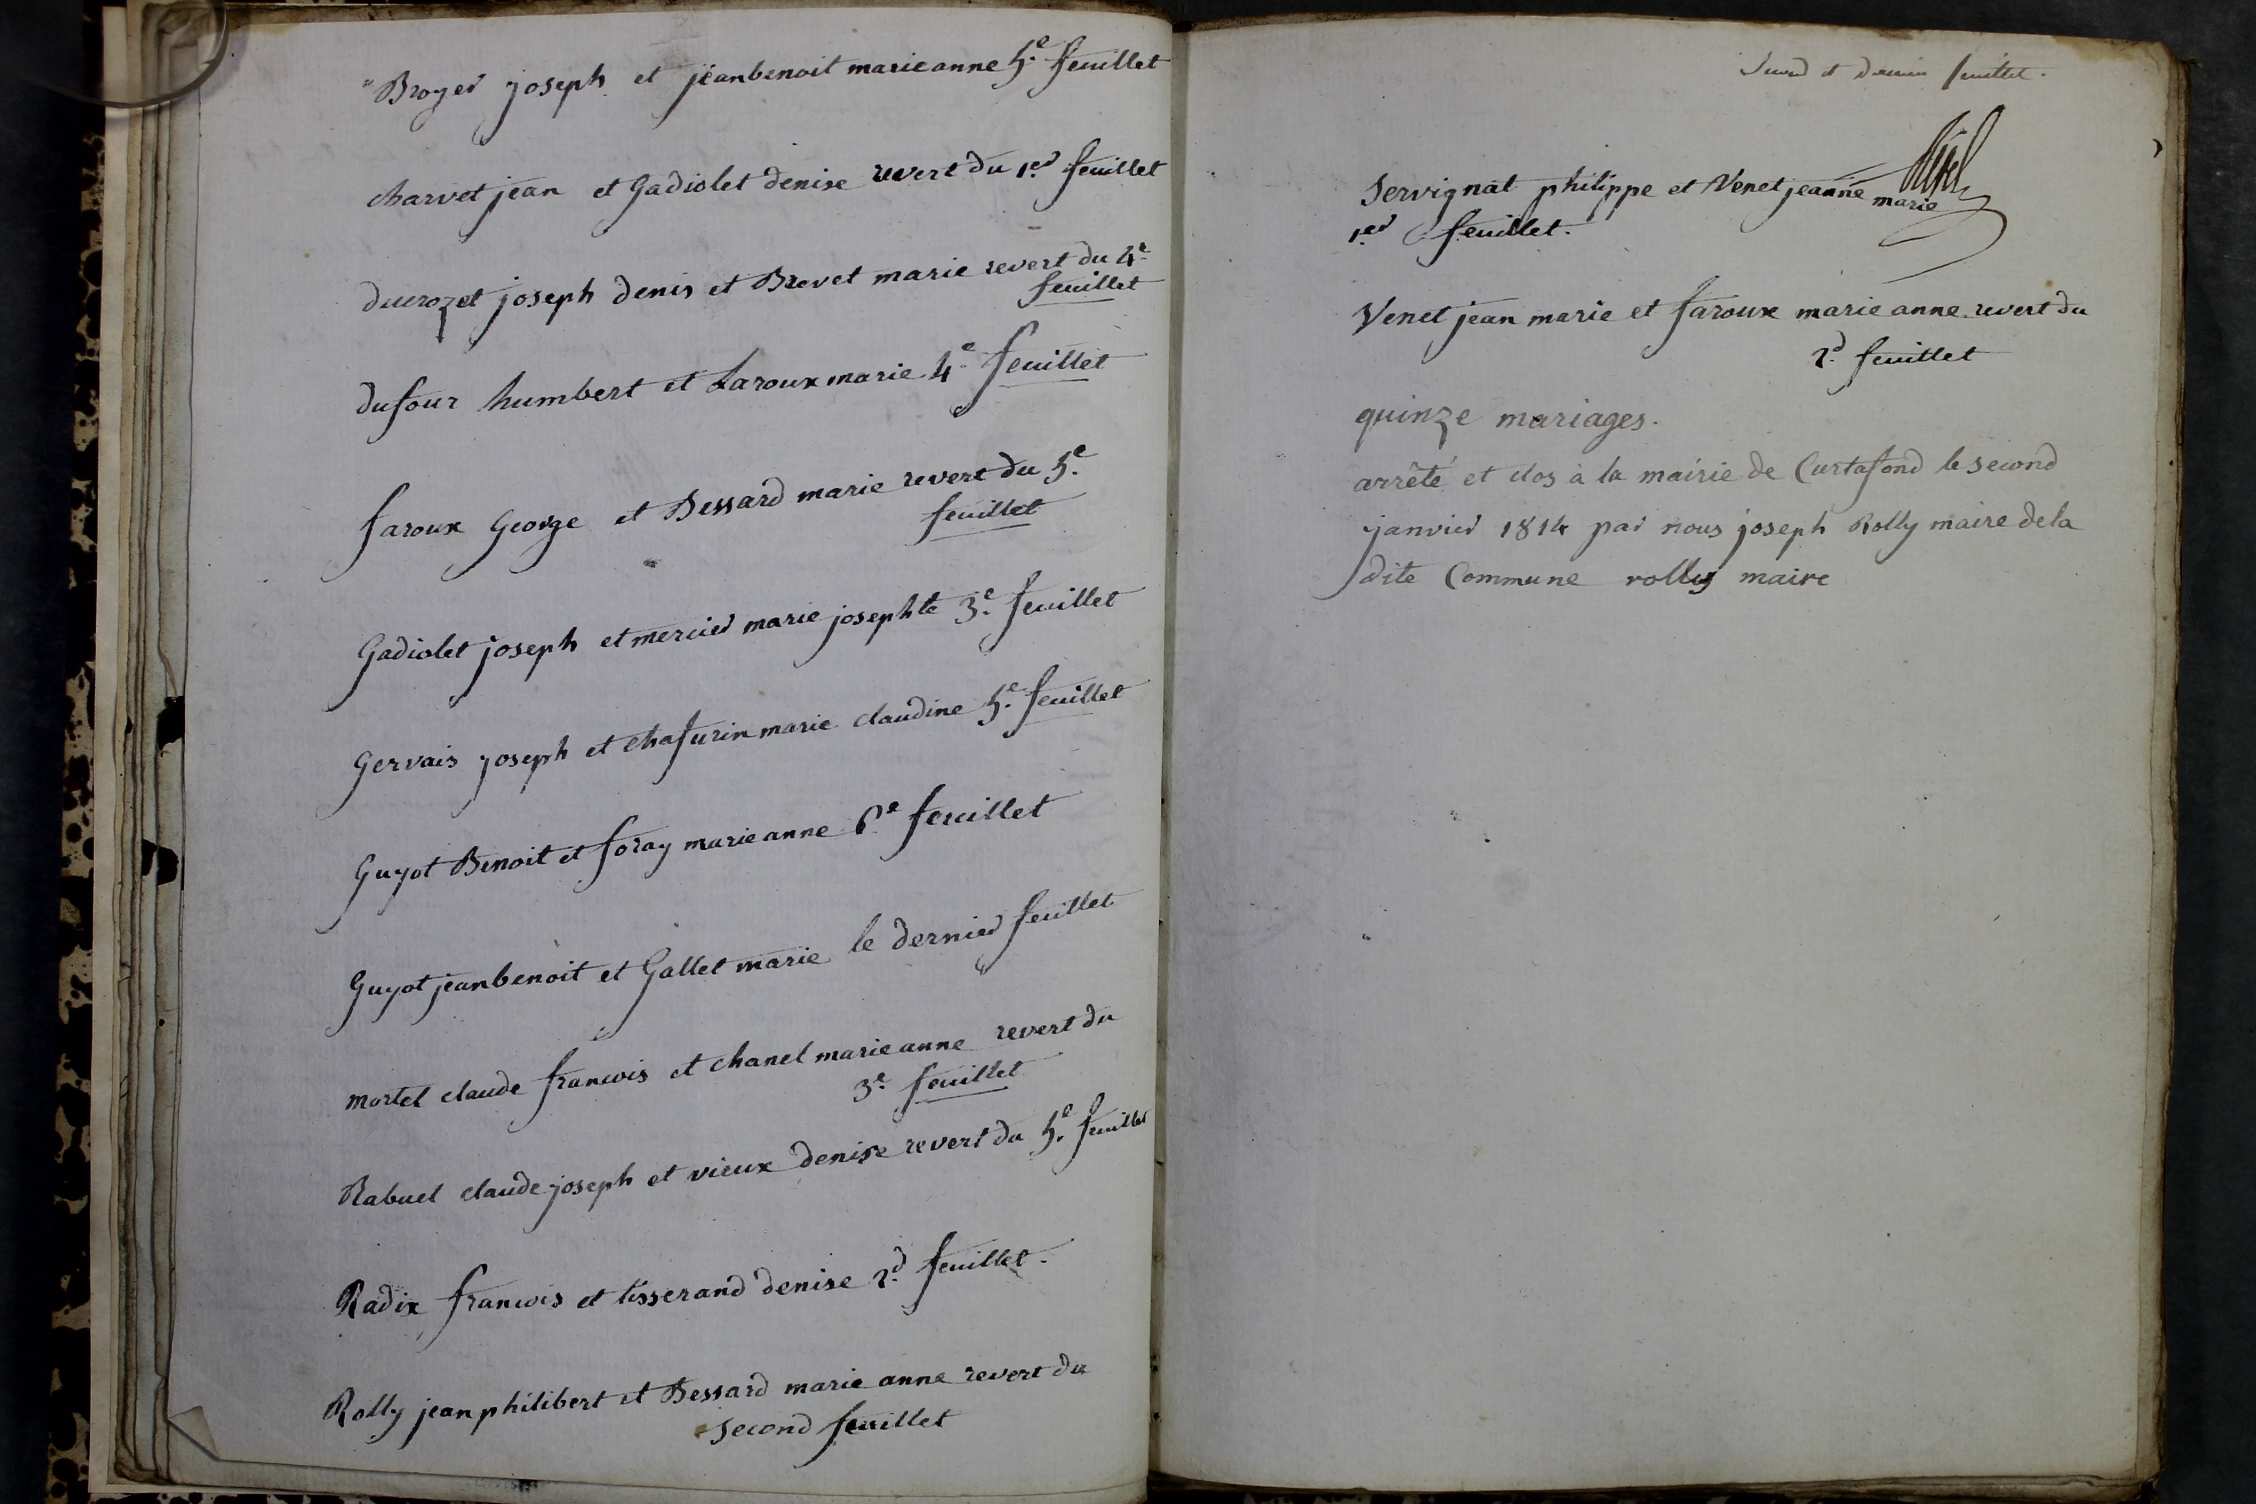 Broyer joseph et jéanbenoit marieanne 5.e feuillet
charvet jean et Gadiolet denise revert du 1.er feuillet
ducrozet joseph denis et Brevet marie revert du 4.e
feuillet
dufour humbert et Laroux marie 4.e feuillet
faroux George et Bessard marie revert du 5.e
feuillet
Gadiolet joseph et mercier marie josephte 3.e feuillet
Gervais joseph et chafurin marie claudine 5.e feuillet
Guyot Benoit et foray marie anne 6.e feuillet
Guyot jeanbenoit et Gallet marie le dernier feuillet
mortel claude francois et chanel marieanne revert du
3.e feuillet
Rabuel claude joseph et vieux denise revert du 5.e feuillet
Radix francois et tisserand denise 2.d feuillet.
Rolly jean philibert et Bessard marie anne revert du
second feuillet
second et dernier feuillet.
Servignat philippe et Venet jeanne marie
1.er feuillet.
Venet jean marie et faroux marie anne revert du
2.d feuillet
quinze mariages.
arrêté et clos à la mairie de Curtafond le second
janvier 1814 par nous joseph Rolly maire dela
dite Commune rolly maire